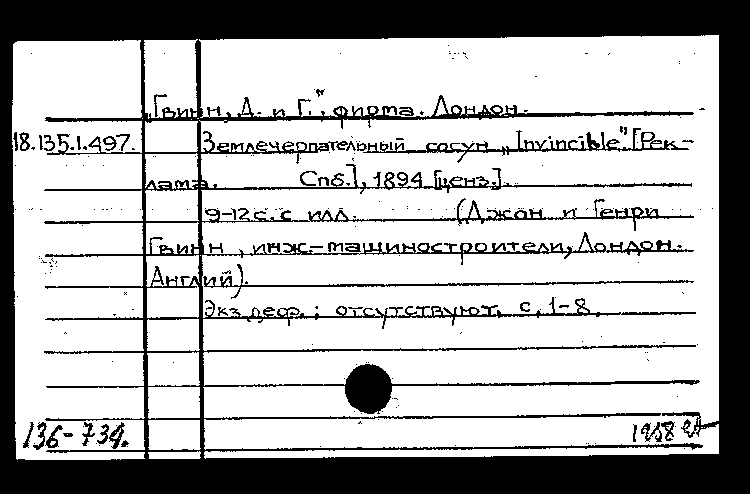 „Гвинн, Д. и Г.", фирма. Лондон.
18.135.1.497. Землечерпательный сосун „Invincible". [Рек-
лама. Спб.], 1894 [ценз.].
9-12 с. с илл. (Джон и Генри
Гвинн, инж.-машиностроители, Лондон.
Англий).
Экз. деф.; отсутствуют. с. 1-8.
136-734. 1958